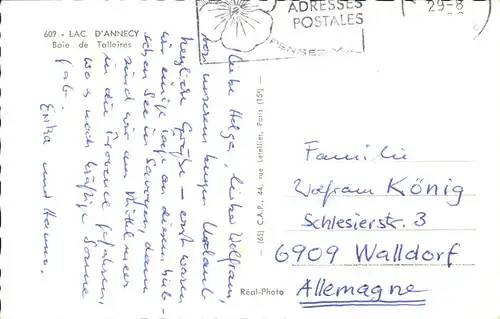 609 - LAC D'ANNECY
Baie de Talloires
ADRESSES
POSTALES
PENSEZ
29-8
Liebe Helga, lieber Wolfram,
von unserem kurzen Urlaub
herzliche Grüße – erst waren
wir einige Tage an diesem hüb-
schen See in Savoyen, dann
sind wir ans Mittelmeer
in die Provence gefahren,
wo's noch kräftige Sonne
gab.
Erika und Hanns.
— (65) C.A.P., 44, rue Letellier, Paris (15e) —
Réal-Photo
Familie
Wolfram König
Schlesierstr. 3
6909 Walldorf
Allemagne